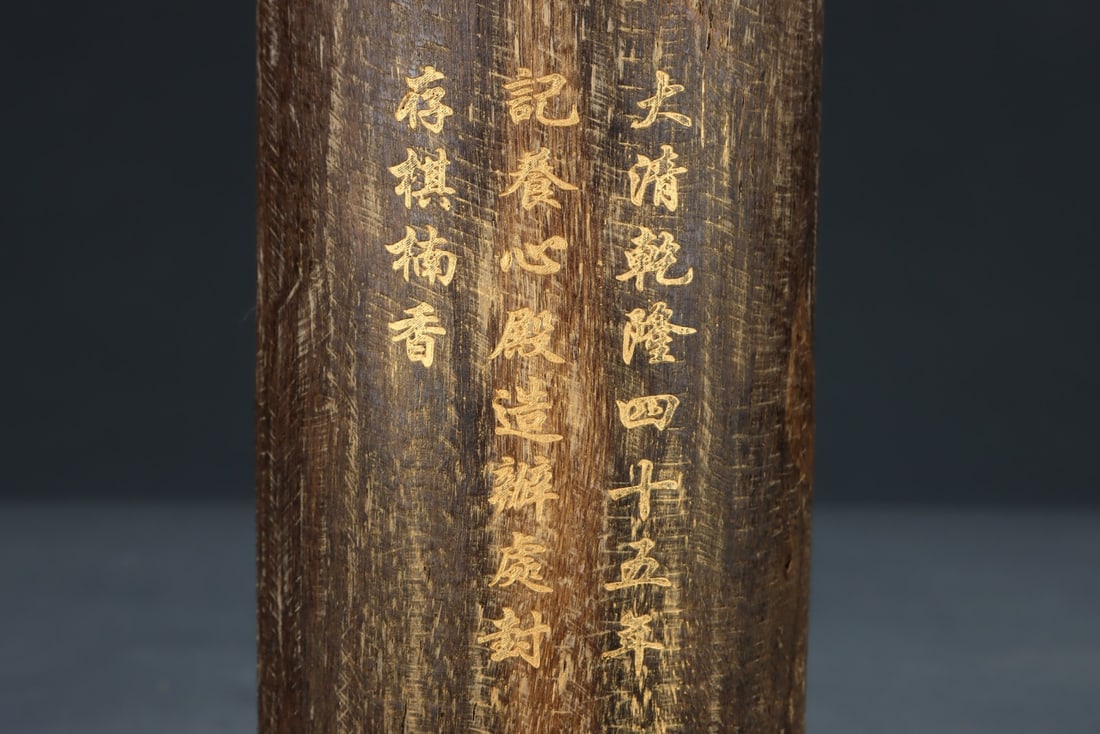 大清乾隆四十五年
記養心殿造辦處封
存棋楠香